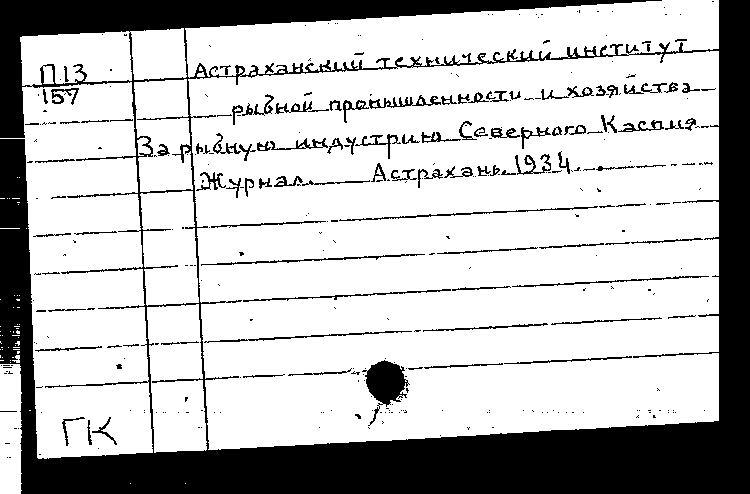 П13
157
Астраханский технический институт
рыбной промышленности и хозяйства
За рыбную индустрию Северного Каспия
Журнал. Астрахань. 1934.
ГК